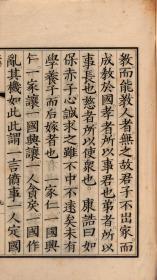 教而能教人者無之故君子不出家而
成教於國孝者所以事君也弟者所以
事長也慈者所以使衆也 康誥曰如
保赤子心誠求之雖不中不遠矣未有
學養子而后嫁者也 一家仁一國興
仁一家讓一國興讓一人貪戾一國作
亂其機如此此謂一言僨事一人定國